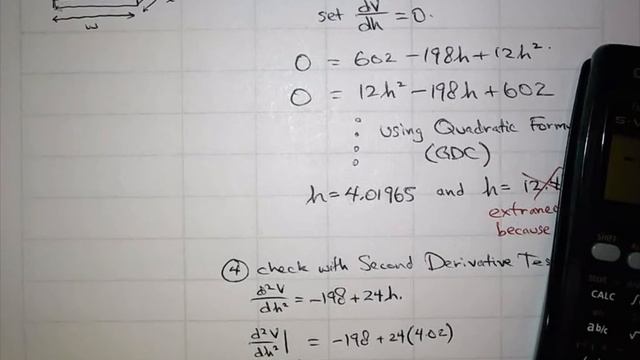 w
set dV/dh = 0.
0 = 602 - 198h + 12h².
0 = 12h² - 198h + 602
using Quadratic Form
(GDC)
h = 4.01965 and h =
because
④ check with Second Derivative Tes
d²V/dh² = -198 + 24h.
d²V/dh²| = -198 + 24(4.02)
SHIFT
CALC
ab/c